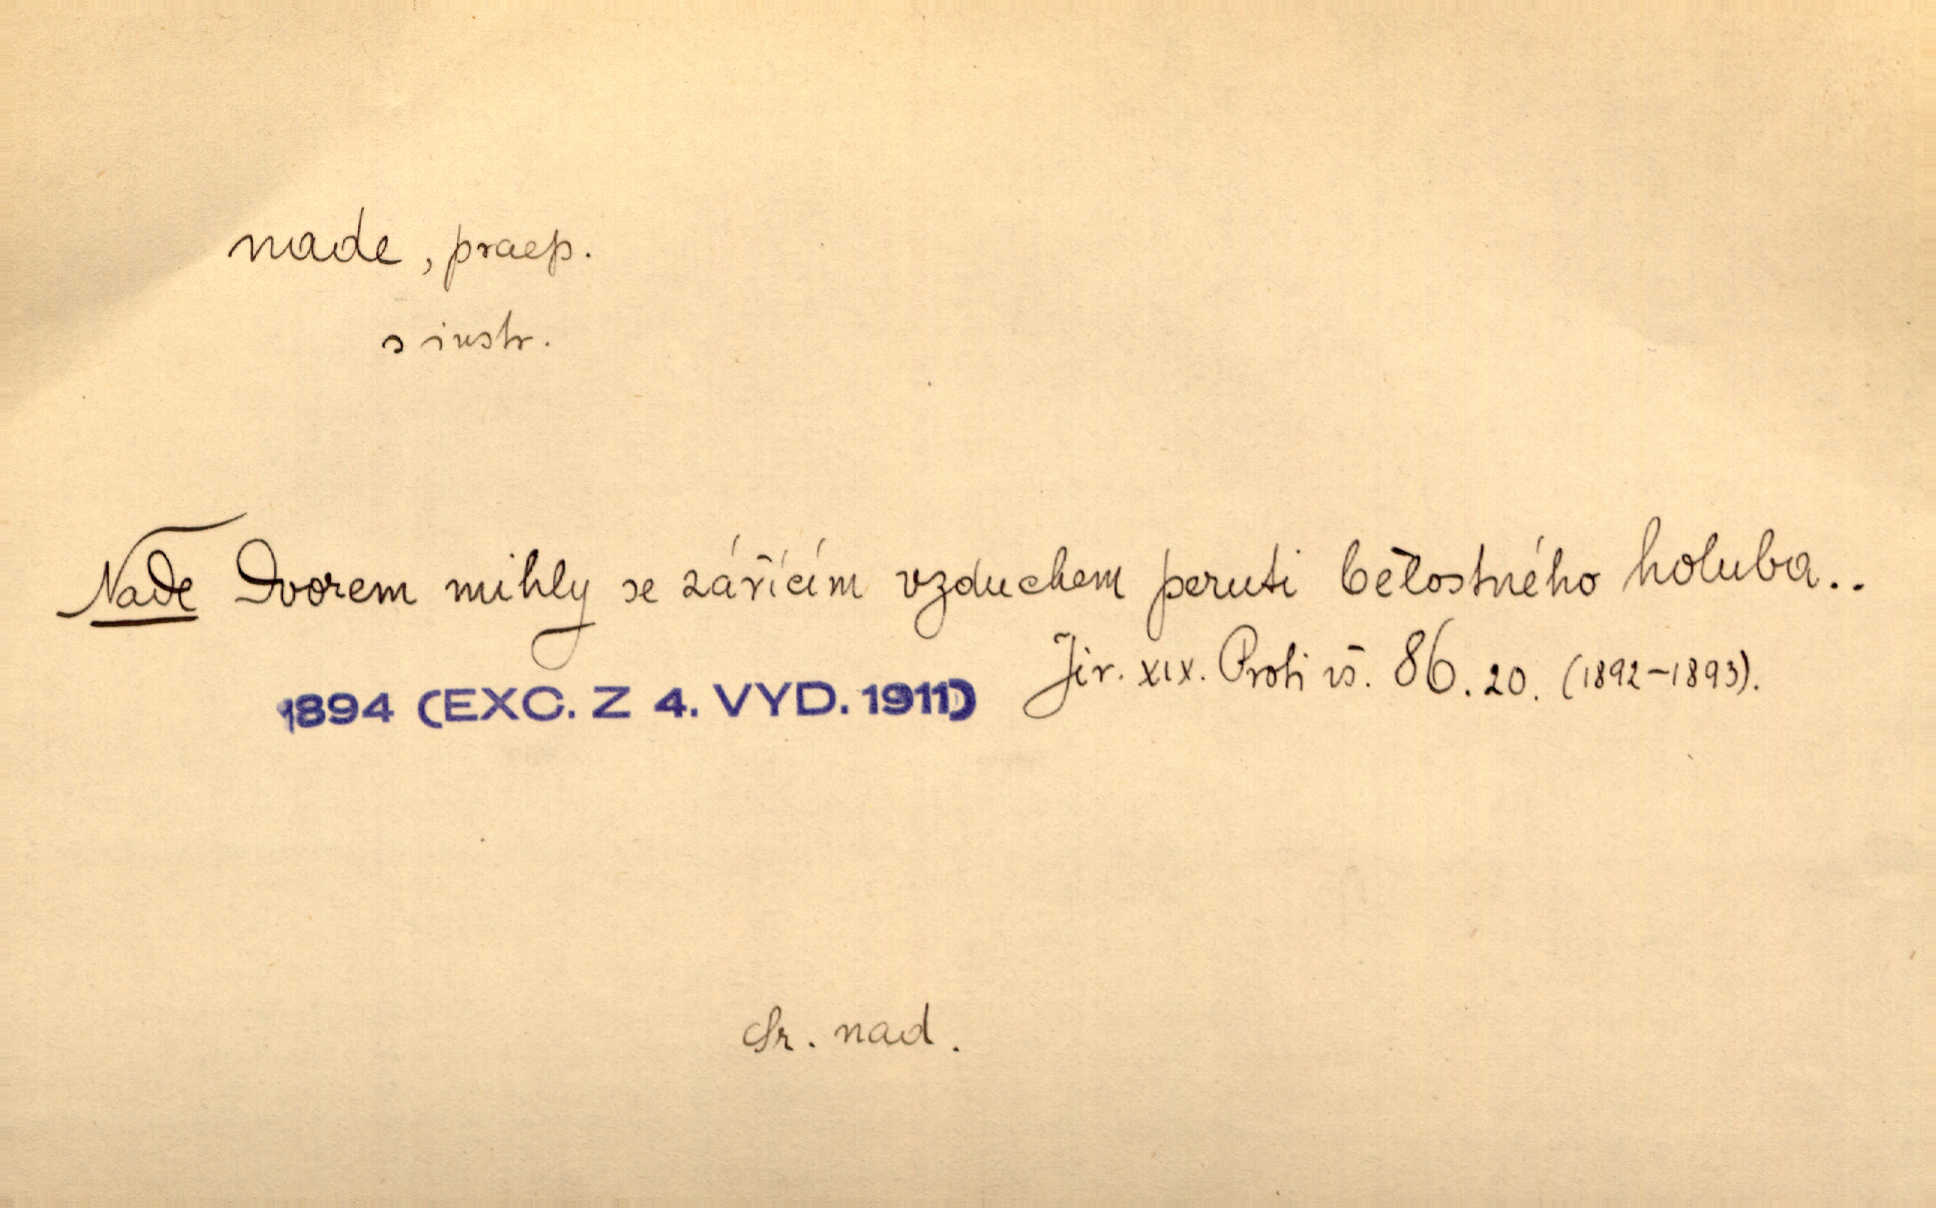 nade, praep.
s instr.
Nade Dvorem mihly se zářícím vzduchem peruti bělostného holuba..
Jir. XIX. Proti vš. 86. 20. (1892-1893).
1894 (EXC. Z 4. VYD. 1911)
Sr. nad.